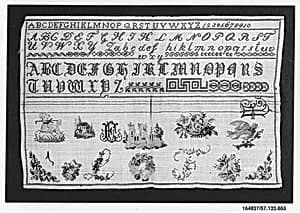 ABCDEFGHIKLMNOP QRSTUVWXYZ 1234567890
ABCDEFGHIKLMNOPQRST
UVWXYZ abcdef hiklmnopqrstuv
wxy
ABCDEFGHIKLMNOPQRS
TUVWXYZ